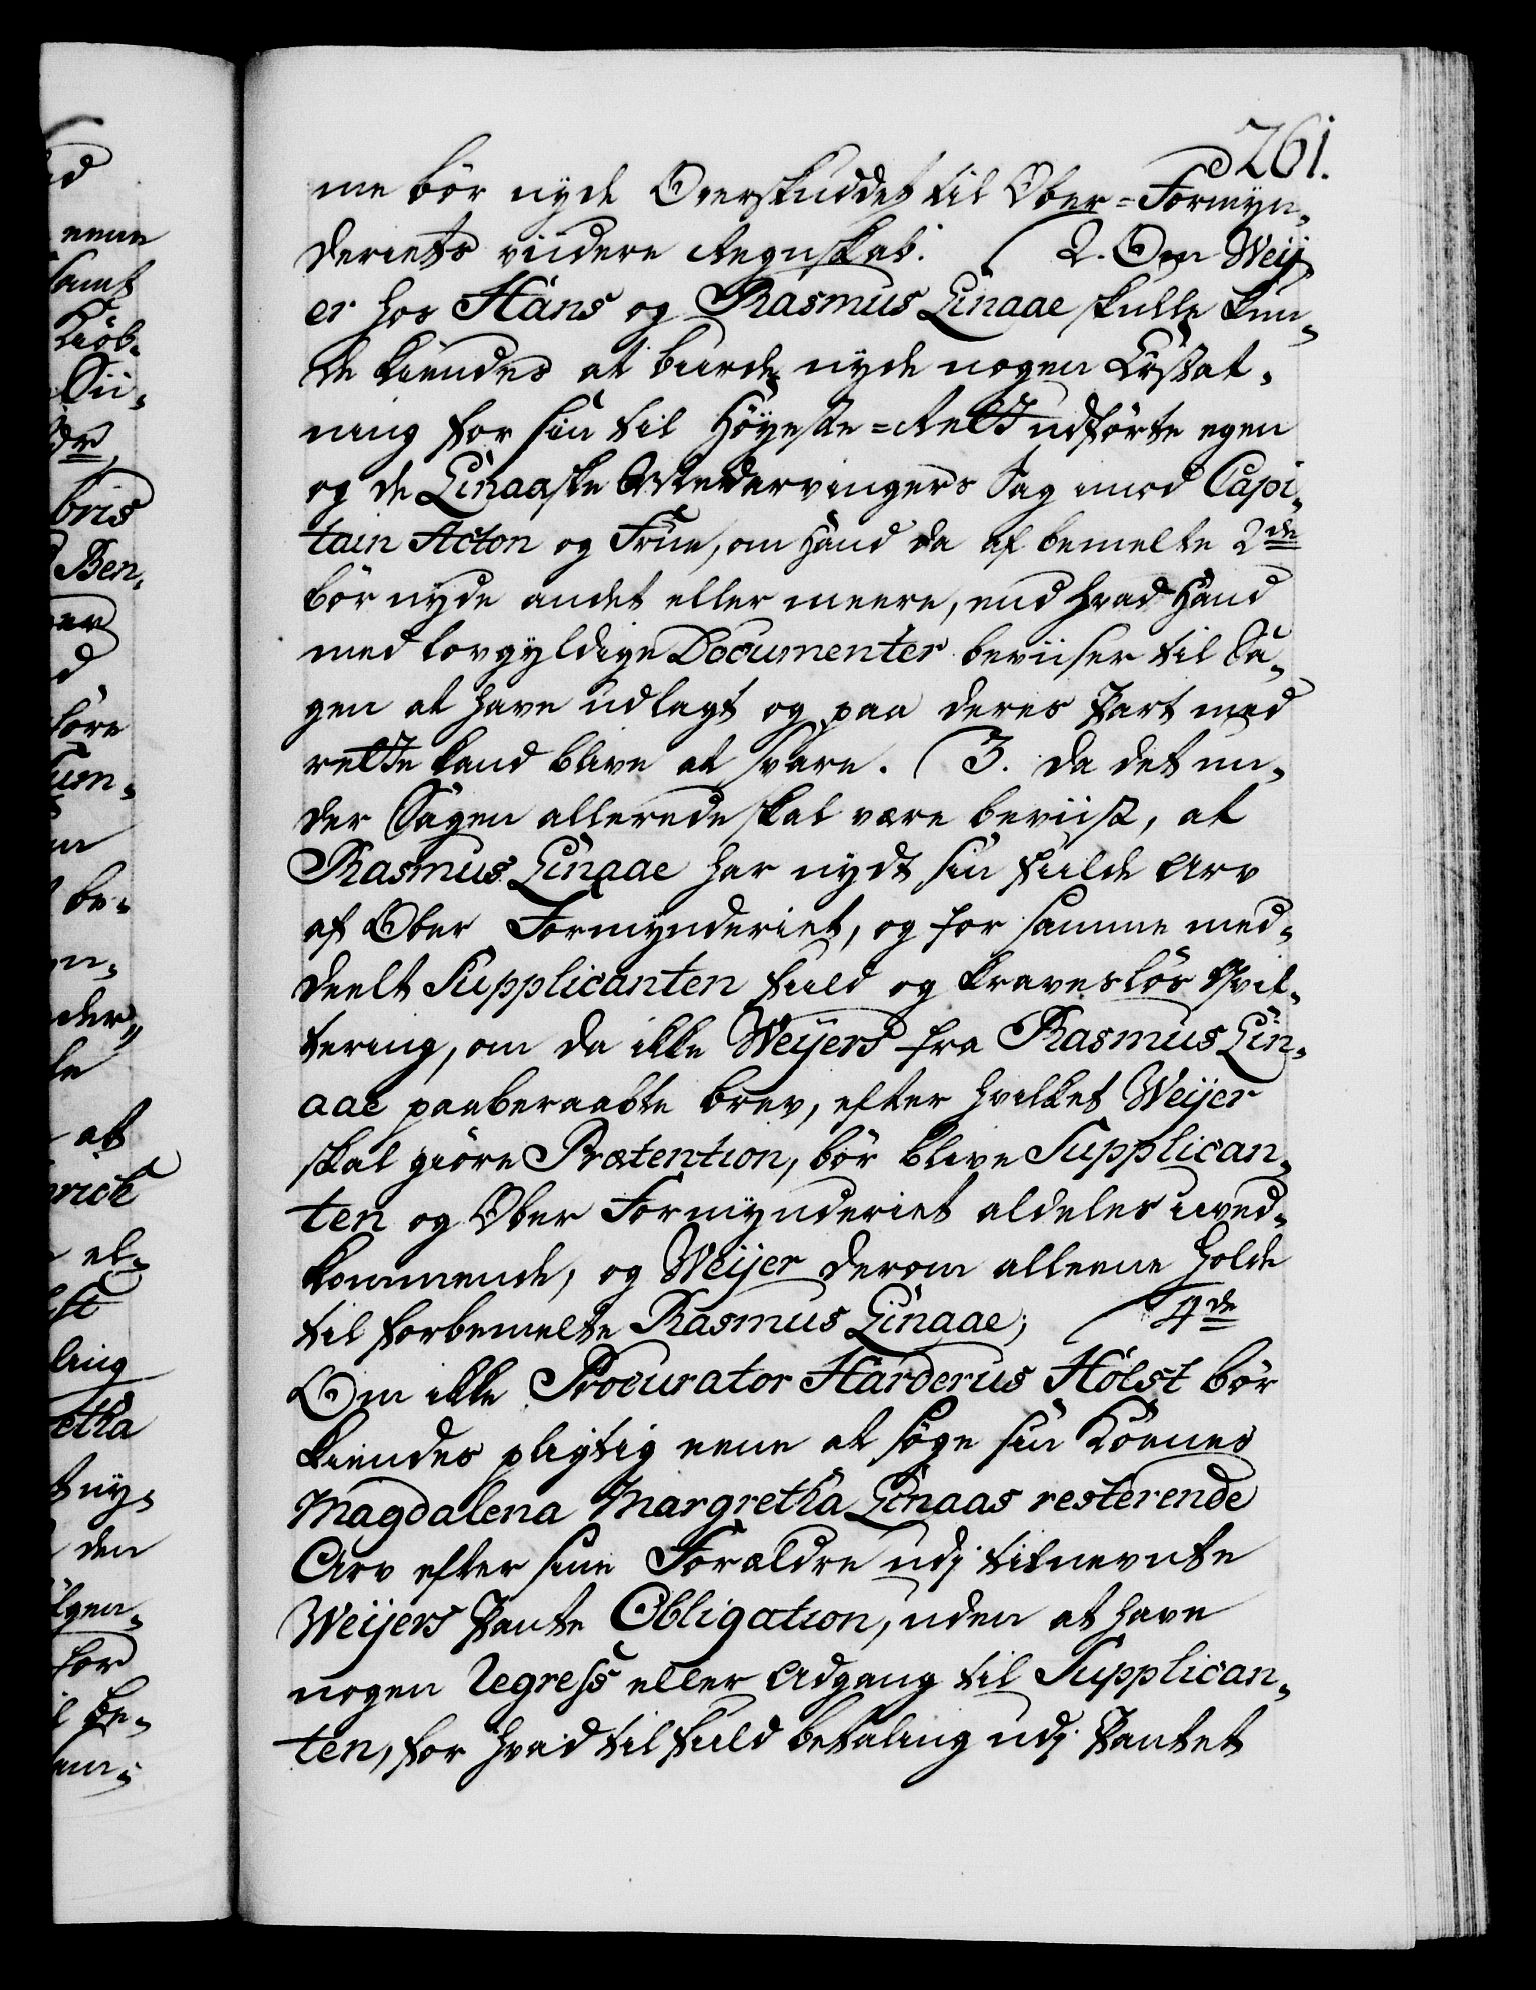 261.
me bör nyde Overskuddet til Ober-Formyn-
deriets viidere Regnskab. 2. Om Weij-
er hos Hans og Rasmus Linaae skulle kun-
de kiendes at burde nyde nogen Ersat-
ning for sin til Höyeste-Rett udförte egen
og de Linaaske Arvingers Sag imod Capi-
tain Acton og Frue, om Hand da af bemelte 2de
bör nyde andet eller meere, end hvad Hand
med lovgyldige Documenter beviiser til Sa-
gen at have udlagt og paa deres Part med
rette kand blive at svare. 3. da det un-
der Sagen allerede skal være beviist, at
Rasmus Linaae har nydt sin fulde Arv
af Ober Formynderiet, og for samme med-
deelt Supplicanten fuld og kraveslös Qvit-
tering, om da ikke Weijers fra Rasmus Lin-
aae paaberaabte brev, efter hvilket Weijer
skal giöre Prætention, bör blive Supplican-
ten og Ober Formynderiet aldeles uved-
kommende, og Weijer derom alleene holde
til forbemelte Rasmus Linaae; 4de
Om ikke Procurator Harderus Holst bör
kiendes pligtig eene at söge sin Kones
Magdalena Margretha Linaas resterende
Arv efter sine Forældre udj titnevnte
Weijers Pante Obligation, uden at have
nogen Regress eller Adgang til Supplican-
ten, for hvad til fuld betaling udj Pantet